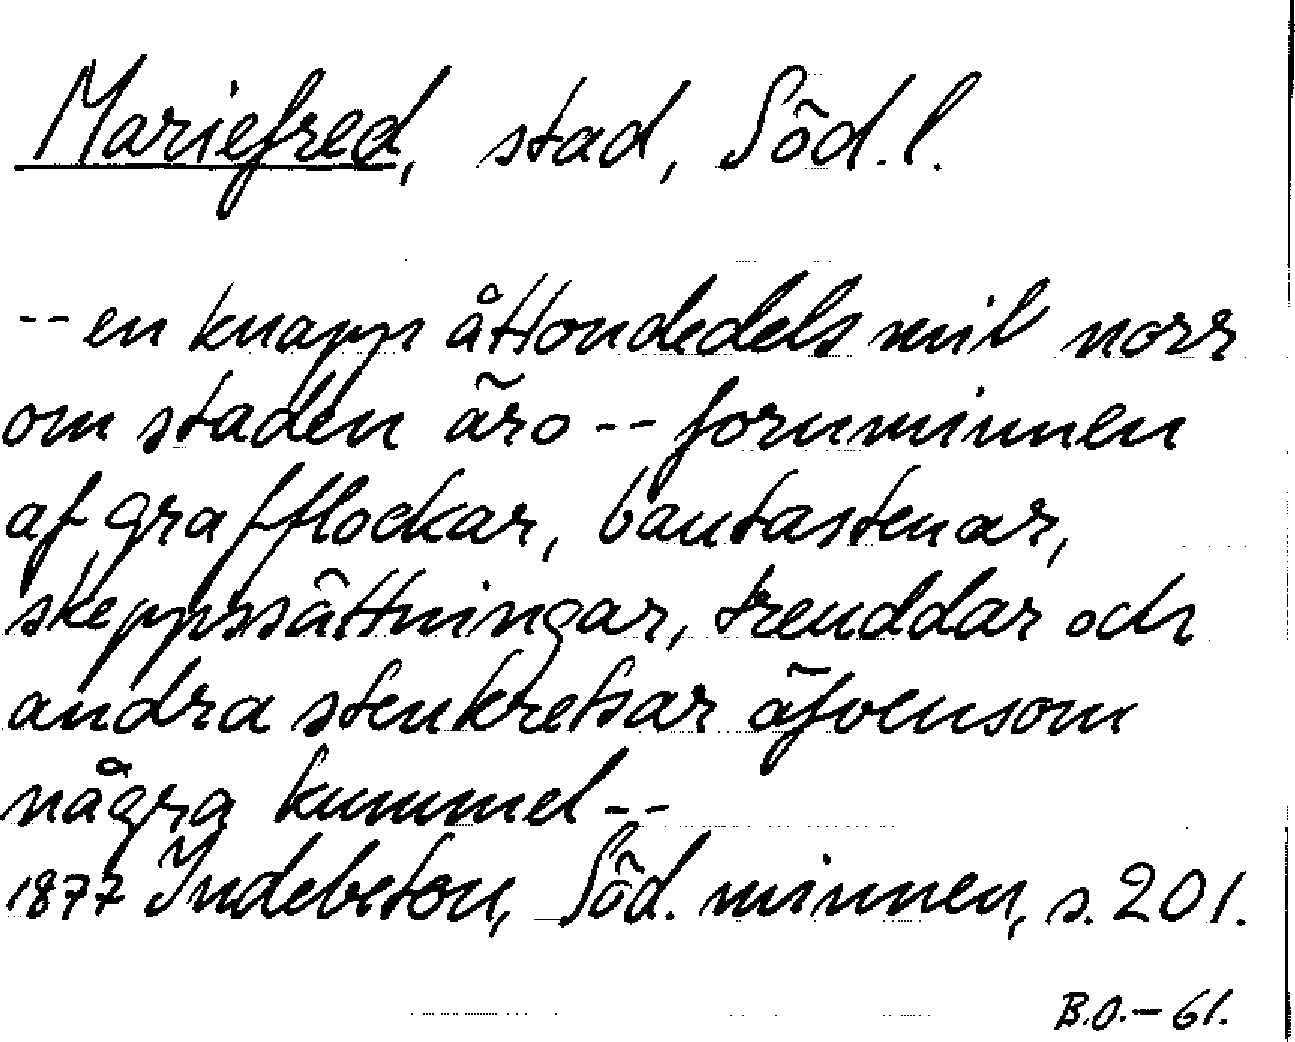 Mariefred, stad, Söd. l.
-- en knapp åttondedels mil norr
om staden äro -- fornminnen
af grafflockar, bautastenar,
skeppssättningar, treuddar och
andra stenkretsar äfvensom
några kummel --
1877 Indebetou, Söd. minnen, s. 201.
B.O. - 61.